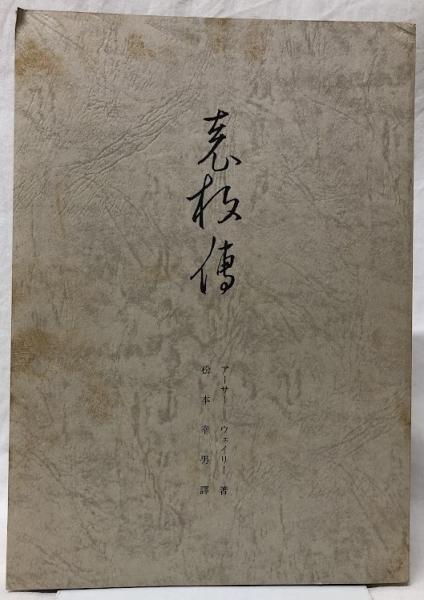 袁枚傳
アーサー・ウェイリー著
松本幸男譯